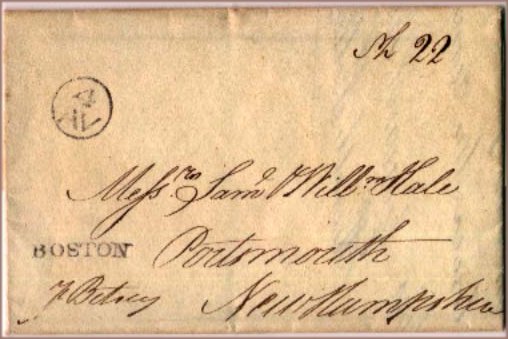 Sh 22
Messrs Saml & Willm Hale
BOSTON
Portsmouth
p Betsey
New Hampshire